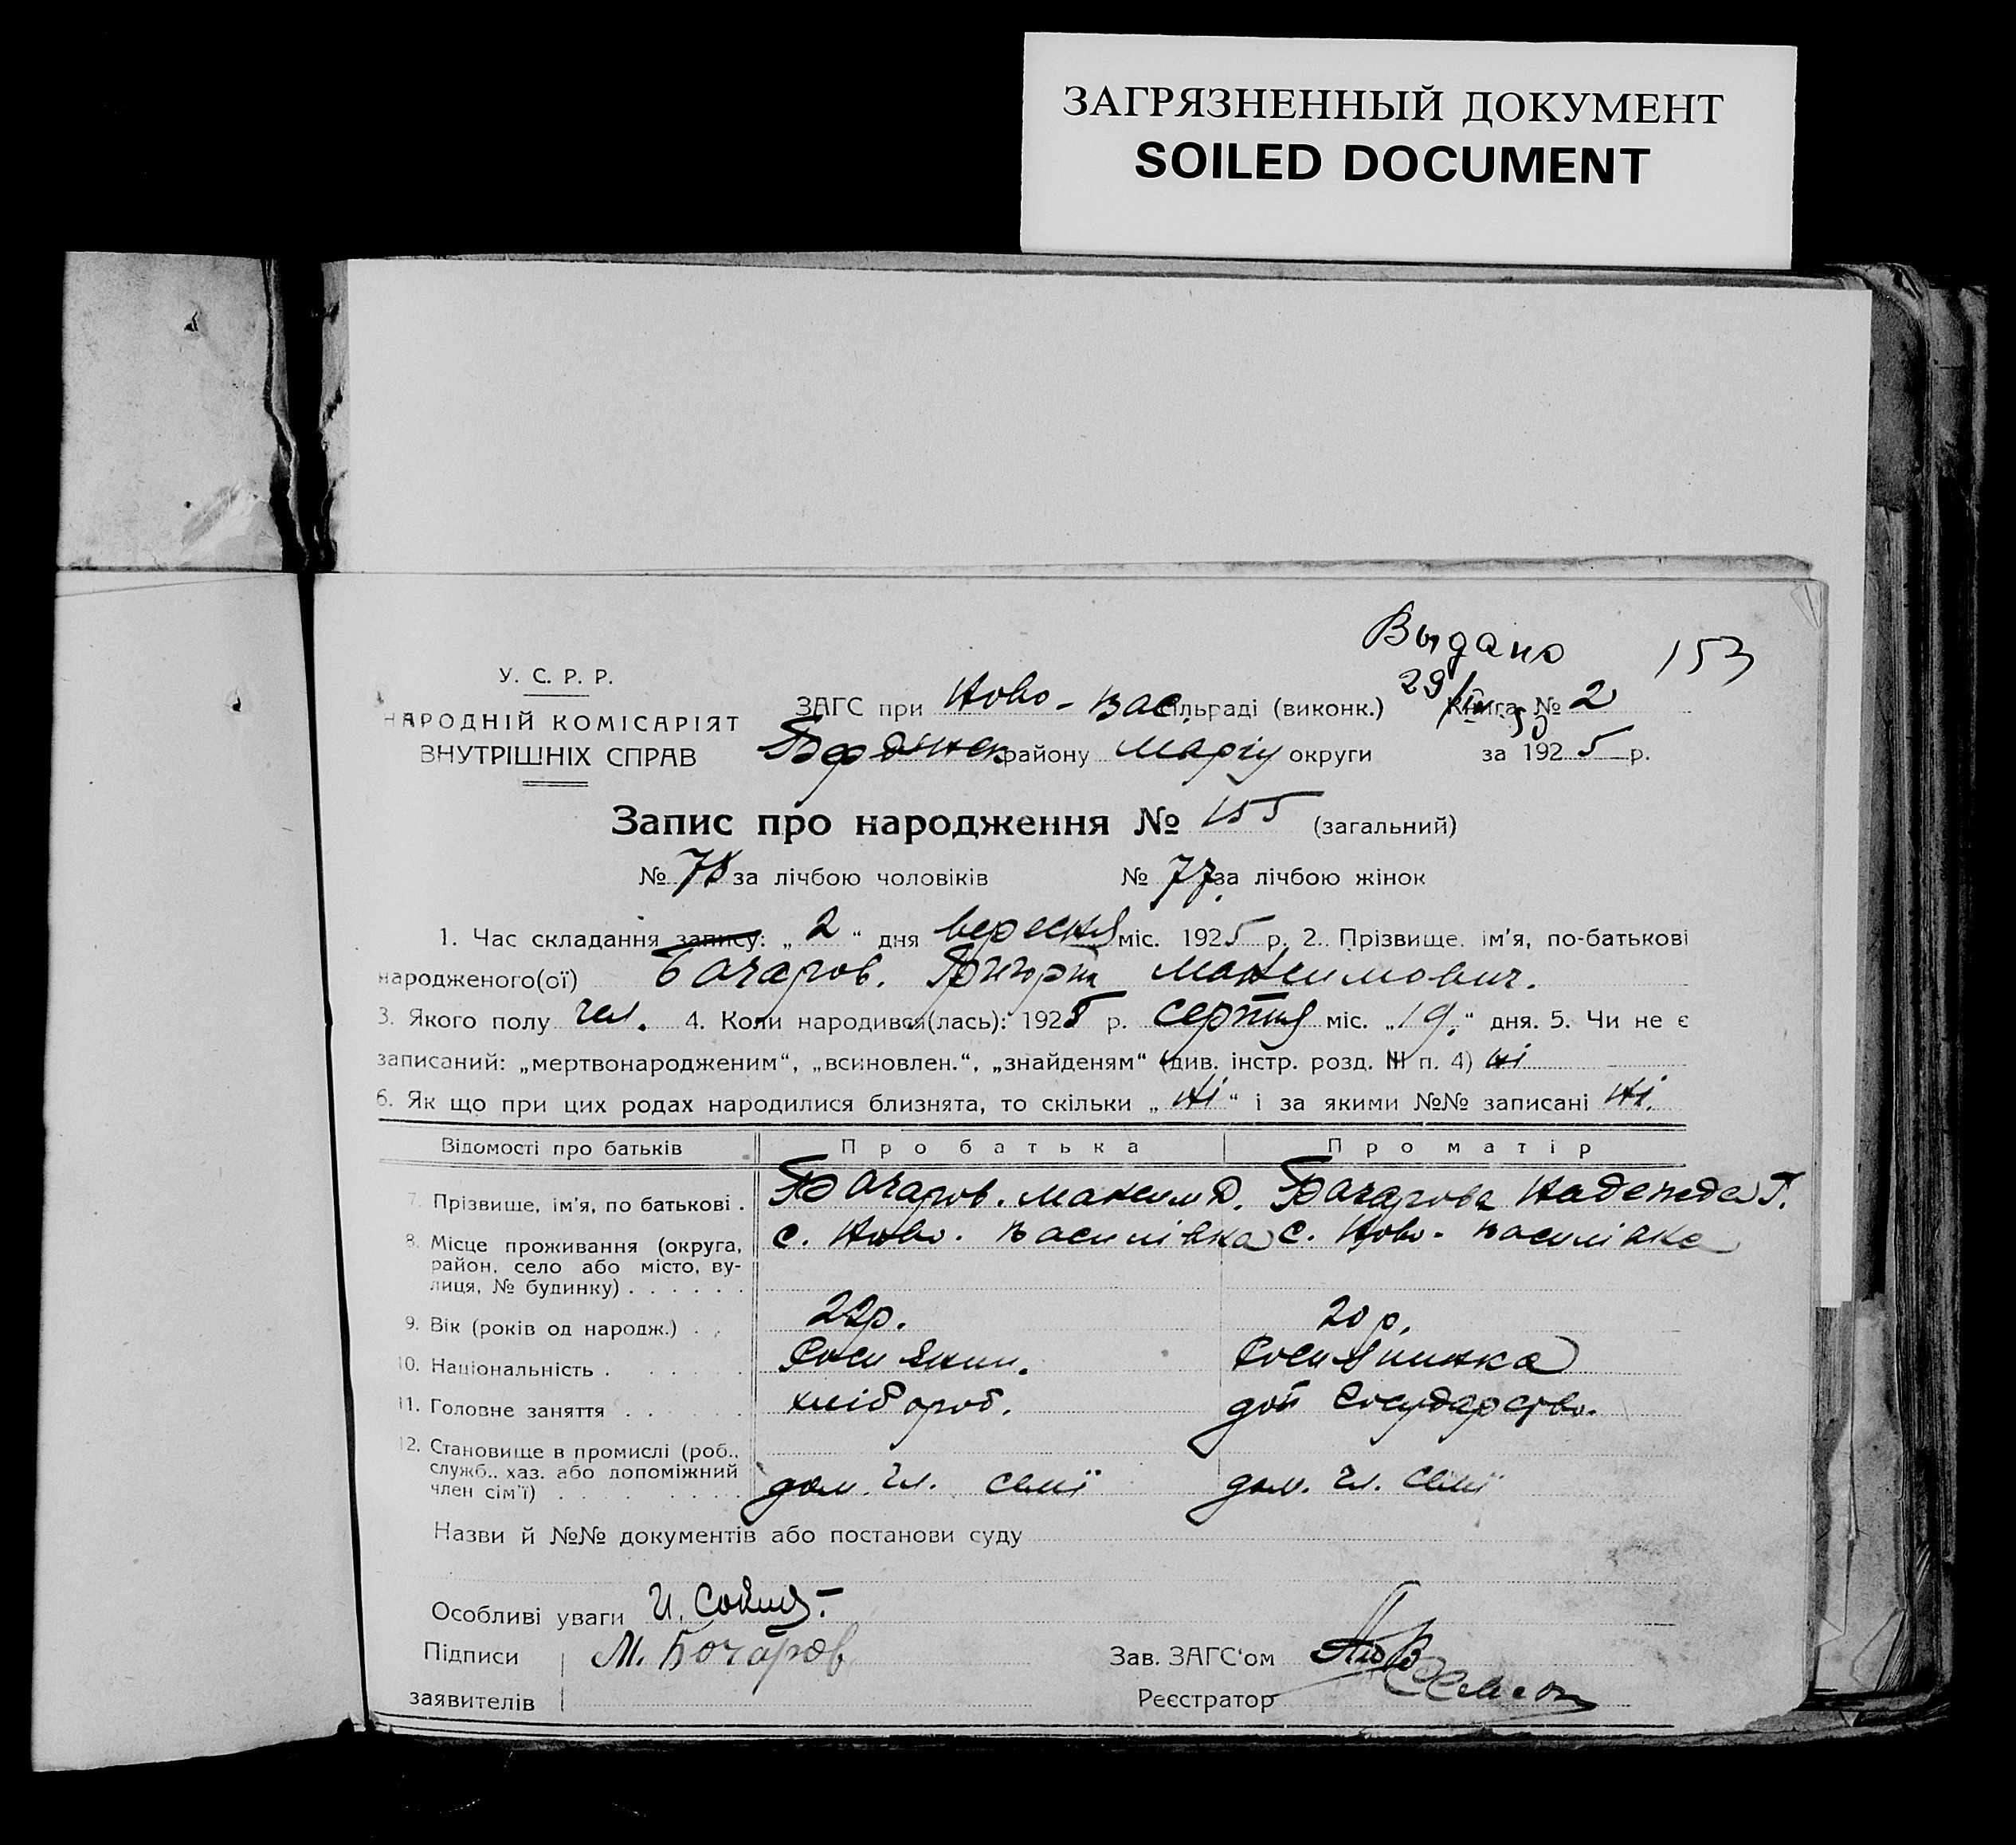 ЗАГРЯЗНЕННЫЙ ДОКУМЕНТ
SOILED DOCUMENT
Выдано 153
29/ 50
У. С. Р. Р.
НАРОДНІЙ КОМІСАРІЯТ
ВНУТРІШНІХ СПРАВ
ЗАГС при Ново-Вас. сільраді (виконк.) Книга № 2
Бердянськ району Маріу округи за 1925 р.
Запис про народження № 155 (загальний)
№ 78 за лічбою чоловіків № 77 за лічбою жінок
1. Час складання запису: „2“ дня вересня міс. 1925 р. 2. Прізвище, ім'я, по-батькові
народженого(ої) Бачаров. Максимович.
3. Якого полу чол. 4. Коли народився(лась): 1925 р. серпня міс. „19.“ дня. 5. Чи не є
записаний: „мертвонародженим“, „всиновлен.“, „знайденям“ (див. інстр. розд. III п. 4) ні
6. Як що при цих родах народилися близнята, то скільки „ні“ і за якими №№ записані ні.
Відомості про батьків Про батька Про матір
7. Прізвище, ім'я, по батькові . Бачаров. Максим Д. Бачарова Надежда Г.
8. Місце проживання (округа, район, село або місто, ву-
лиця, № будинку) . . . . . . с. Ново-Василівка с. Ново-Василівка
9. Вік (років од народж.) . . 22р. 20р.
10. Національність . . . . . . Росиянин. Росиянинка
11. Головне заняття . . . . . хлібороб. дом Господарство.
12. Становище в промислі (роб.,
служб., хаз. або допоміжний
член сім'ї) . . . . . . . . дом. чл. семї дом. чл. семї
Назви й №№ документів або постанови суду
Особливі уваги
Підписи М. Бочаров Зав. ЗАГС'ом
заявителів Реєстратор